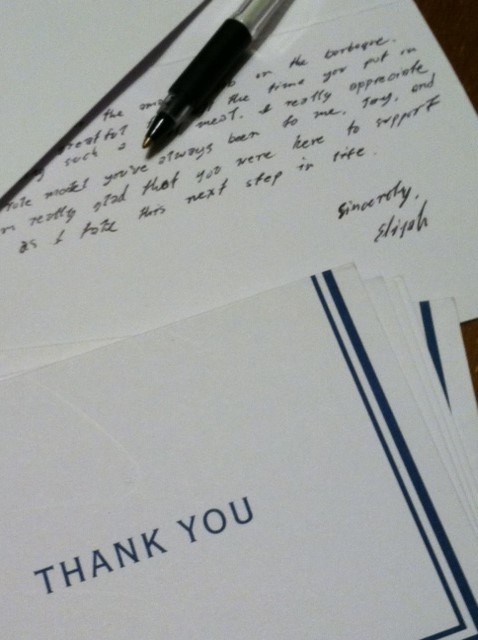 on the barbeque.
the time you put in
such a meal. I really appreciate
role model you've always been to me, Jay, and
really glad that you were here to support
as I take this next step in life.
Sincerely,
Elijah
THANK YOU